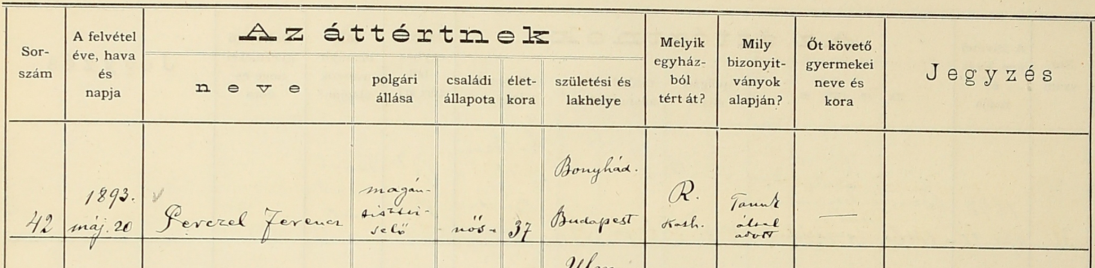 Az áttértnek
Sor-
szám
A felvétel
éve, hava
és
napja
neve
polgári
állása
családi
állapota
élet-
kora
születési és
lakhelye
Melyik
egyház-
ból
tért át?
Mily
bizonyit-
ványok
alapján?
Őt követő
gyermekei
neve és
kora
Jegyzés
42
1893.
máj. 20
Perczel Ferencz
magán-
tisztvi-
selő
nős
37
Bonyhád.
Budapest
R.
Kath.
Tanuk
által
adott
—